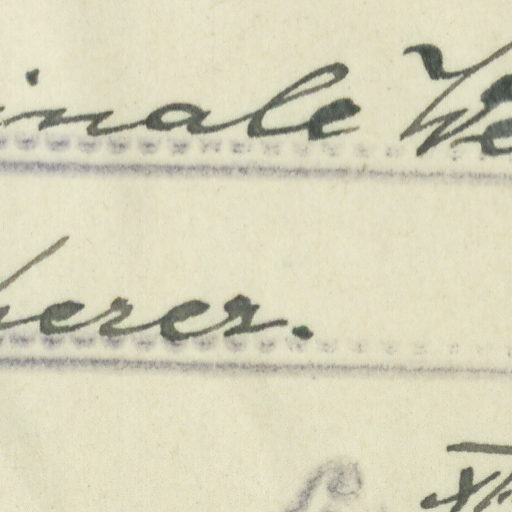 inale We
herer.